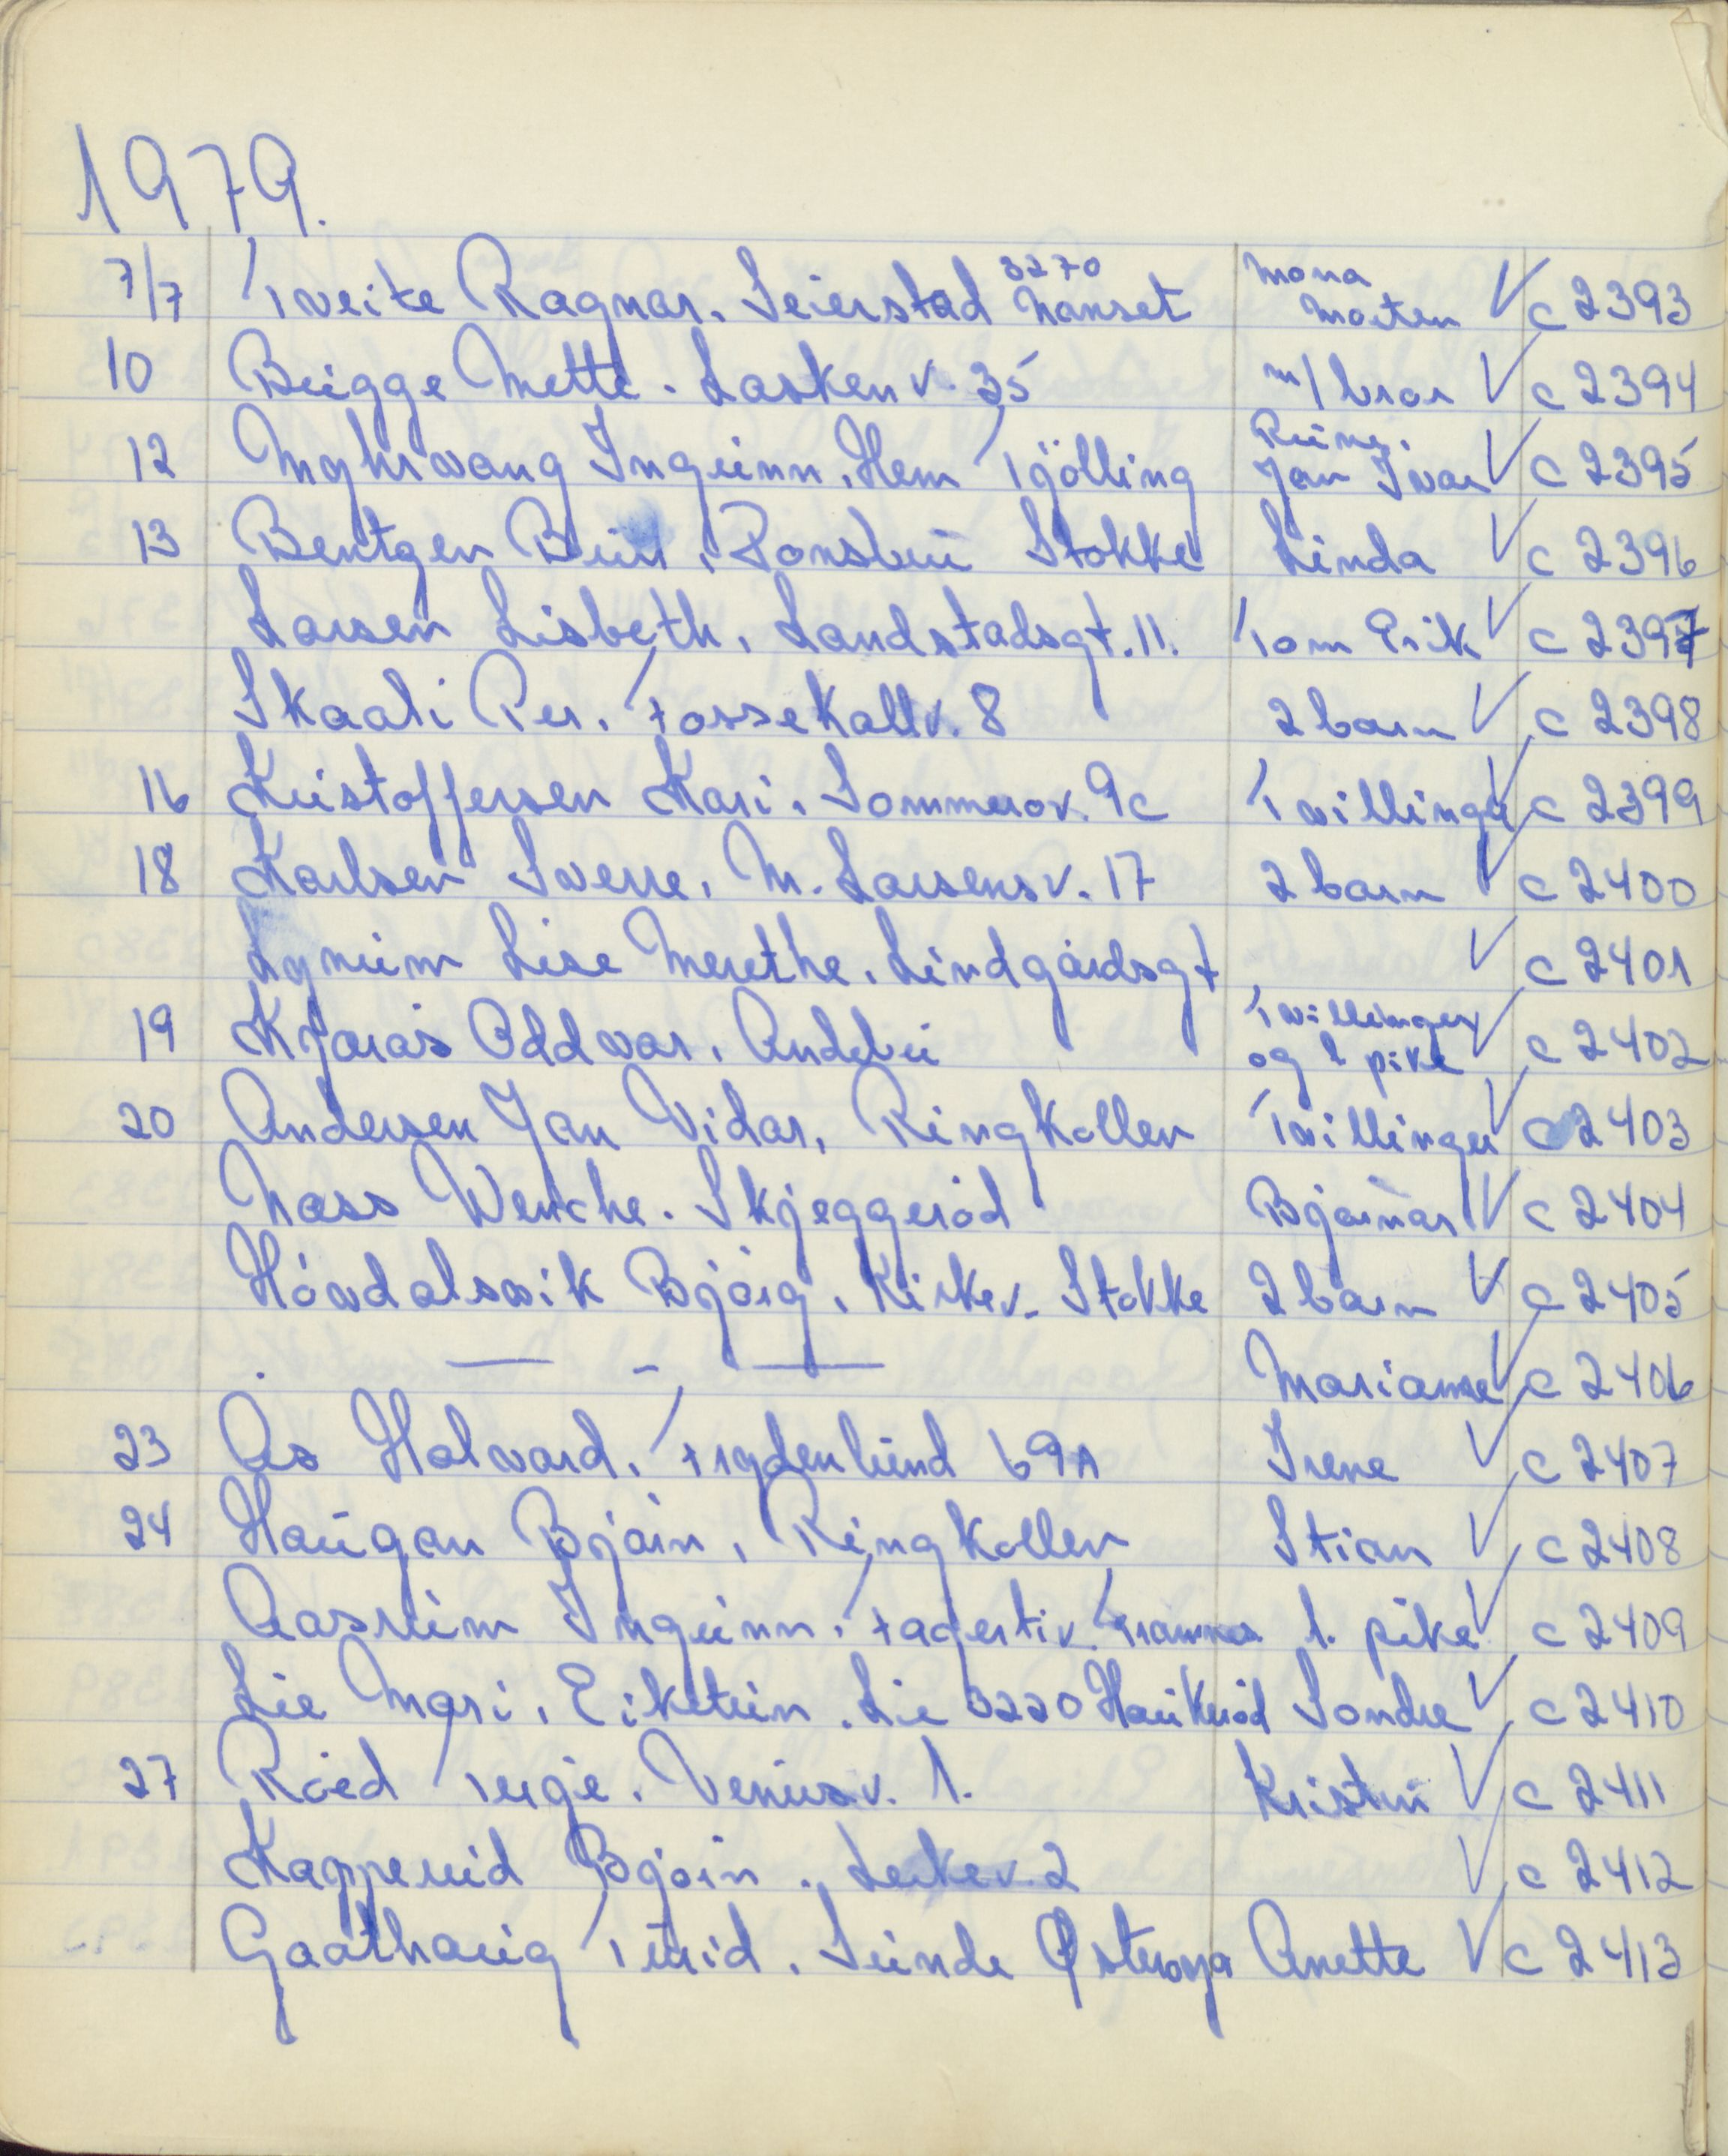 1979.
7/7 Tveite Ragnar. Seierstad 3270 Nanset Mona Morten V c 2393
10 Brügge Mette. Lasken v. 35 m/bror V c 2394
12 Myhrvang Ingunn. Hem Tjölling Rune. Jan Ivar V c 2395
13 Bentzen Stokke Linda V c 2396
Larsen Lisbeth. Landstadsgt. 11. Tom Erik V c 2397
Skaali Per. Fossekallv. 8 2 barn V c 2398
16 Kristoffersen Kari. Sommerov. 9c Tvillinger V c 2399
18 Karlsen Sverre. M. Larsens v. 17 2 barn V c 2400
Lise Merethe. Lindgårdsgt V c 2401
19 Kjærås Oddvar. Andebu Tvillinger og 1 pike V c 2402
20 Andersen Jan Vidar, Ringkollen Tvillinger V c 2403
Nass Wenche. Skjeggeröd Bjørnar V c 2404
Hövdalsvik Björg. Kirkev. Stokke 2 barn V c 2405
. — - — Marianne V c 2406
23 As Halvard. Frydenlund 69A Irene V c 2407
24 Haugan Bjørn, Ringkollen Stian V c 2408
Aasrum Ingunn. Fagerliv. 1. pike V c 2409
Lie Mari. Lie 3220 Sondre V c 2410
27 Röed Terje. Venus v. 1. Kristin V c 2411
Bjørn. Lerkev. 2 V c 2412
Gaathaug Turid. Sunde Østerøya Anette V c 2413